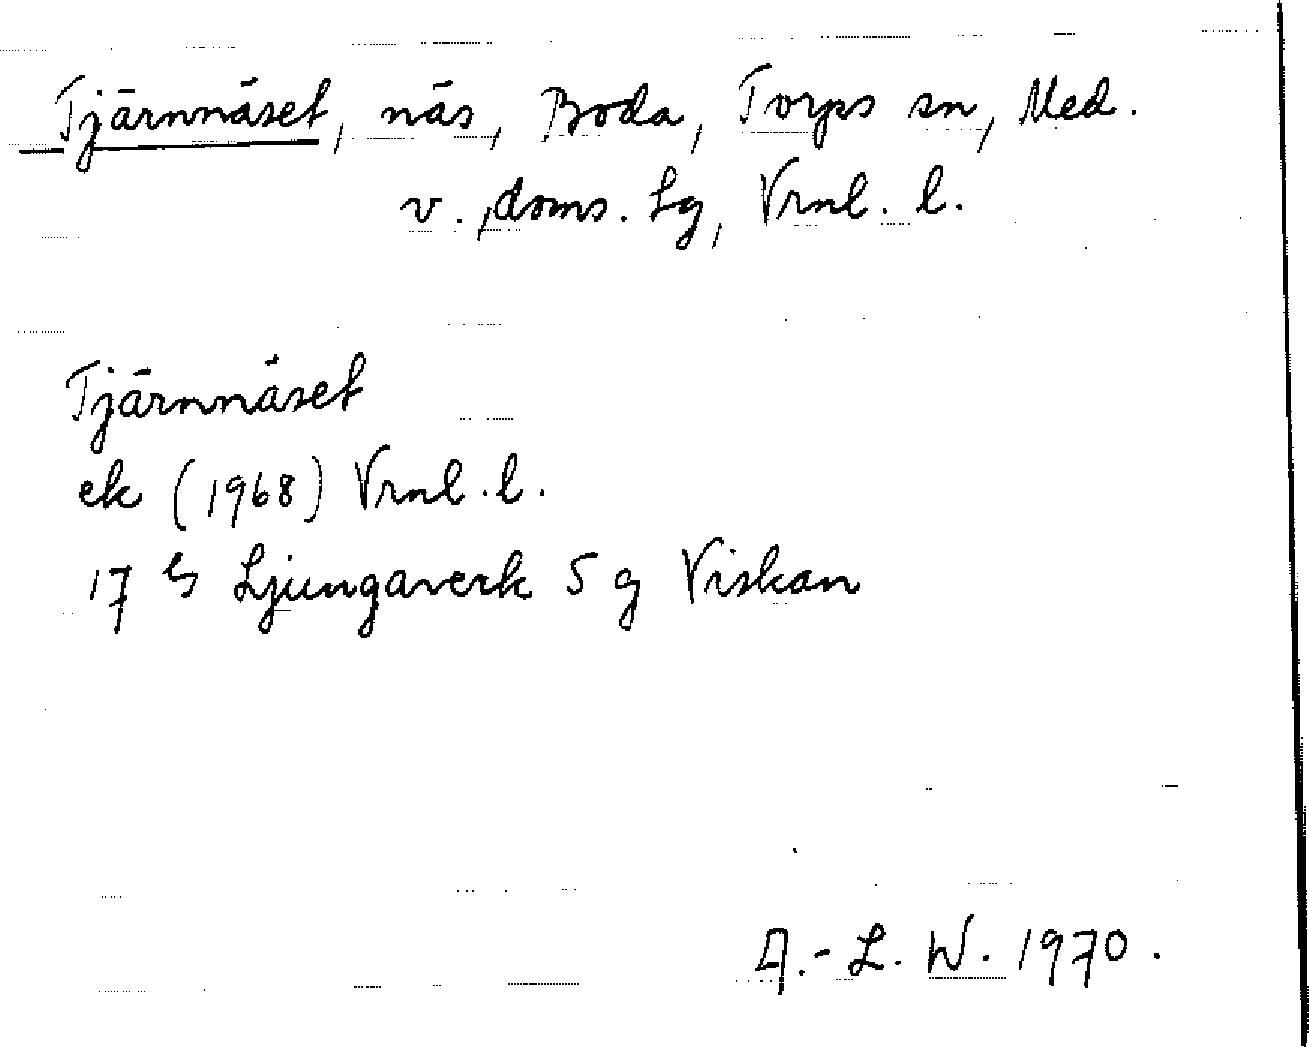 Tjärnnäset, näs, Boda, Torps sn, Med.
v., doms. Lg, Vrnl. l.
Tjärnnäset
ek (1968) Vrnl. l.
17 Ljungaverk 5 g Viskan
A.-L. W. 1970.